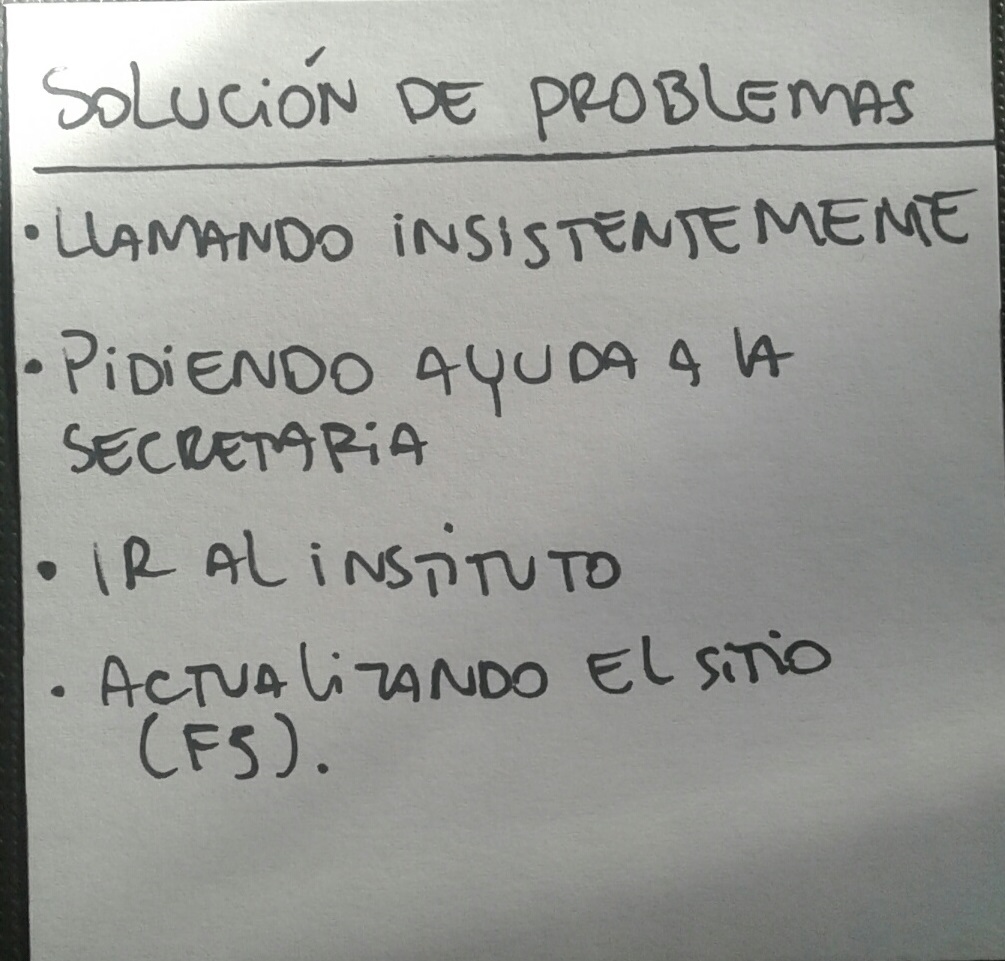 SOLUCIÓN DE PROBLEMAS
• LLAMANDO INSISTENTEMEMTE
• PIDIENDO AYUDA A LA
SECRETARIA
• IR AL INSTITUTO
• ACTUALIZANDO EL SITIO
(F5).